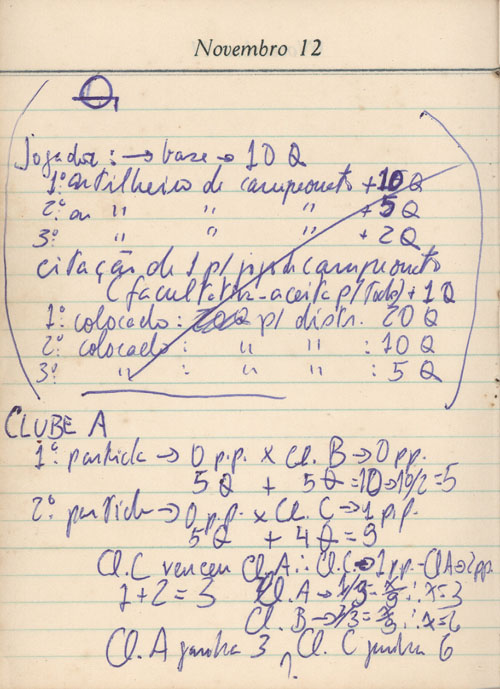 Novembro 12
Q
jogador: → base → 10 Q
1º artilheiro de campeonato + 10 Q
2º " " " + 5 Q
3º " " " + 2 Q
citação de 1 p/ campeonato
(facultativa - aceita p/ todos) + 1 Q
1º colocado: p/ distr. 20 Q
2º colocado: " " : 10 Q
3º " : " " : 5 Q
CLUBE A
1ª partida → 0 p.p. x Cl. B → 0 pp.
5 Q + 5 Q = 10 → 10/2 = 5
2ª partida → 0 p.p. x Cl. C → 1 p.p.
5 Q + 4 Q = 9
Cl. C venceu Cl. A ∴ Cl. C → 1 pp. - Cl A → 2 pp.
1 + 2 = 3 Cl. A → 1/3 = x/9 ∴ x = 3
Cl. B → 2/3 = x/9 ∴ x = 6
Cl. A ganha 3, Cl. C ganha 6